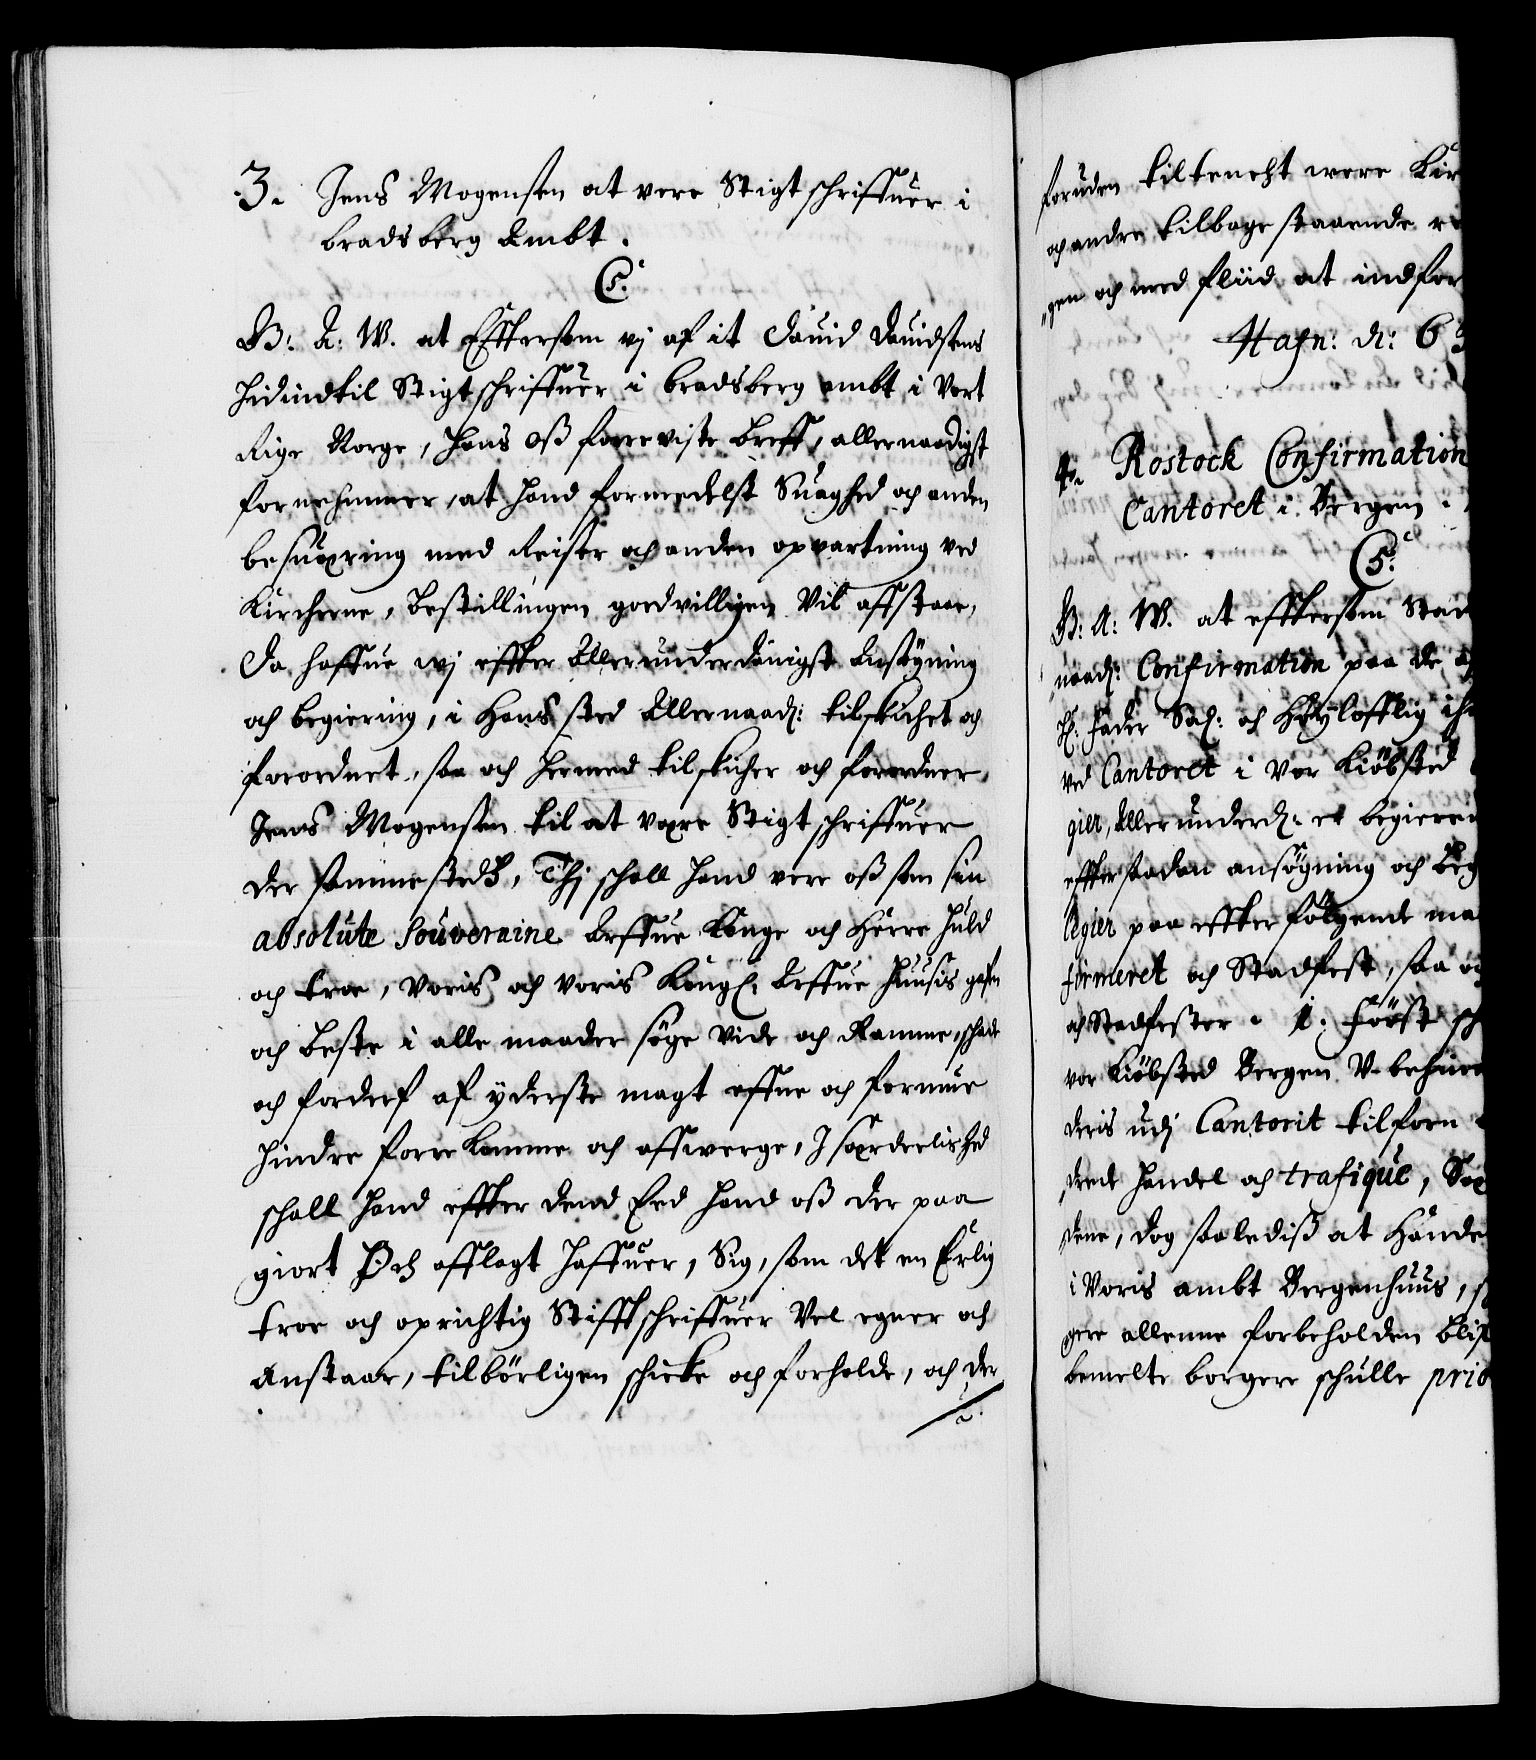 3. Jens Mogensen at vere Stigtschriffuer i
bradsberg Ambt.
C5.
G: A: W. at Efftersom vj af it Dauid Dauidsens
hidindtil Stigtschriffuer i bradsberg ambt i Vort
Rige Norge, hans oß foreviste breff, allernaadigst
fornehmmer, at hand formedelst Suaghed och anden
besuæring med Reiser och anden opvartning ved
Kircherne, bestillingen goedvilligen Vil affstaae,
Da haffue wj effter Allerunderdänigst Ansøgning
och begiering, i Hans sted Allernaad: tilskichet och
forordnet, saa och hermed tilskicher och forordner
Jens Mogensen til at være Stigtschriffuer
der sammesteds, Thj schall hand vere oß som sin
absolute Souveraine Arffue Konge och Herre huld
och troe, Voris och Voris Kongl: Arffue Huusis gafn
och beste i alle maader søge vide och Ramme, schade
och forderf af yderste magt effne och formue
hindre forrekomme och affwerge, I særdeelished
schall hand effter dend Eed hand oß der paa
giort Och afflagt haffuer, Sig, som det en Erlig
troe och oprichtig Stifftschriffuer Vel egner och
Anstaar, tilbørligen schicke och forholde, och der
foruden tiltencht were Kir
och andre tilbage staaende re
gen och med fliid at indfor
Hafn: d: 6
4. Rostock Confirmation
Cantoret i Bergen.
C5.
G: A: W. at efftersom Stad
naad: Confirmation paa de
H: Fader Sal: och Høylofflig ih
ved Cantoret i Vor Kiøbsted
gier, Allerunderd: er begieren
effter saadan ansøgning och beg
legier paa effterfølgende ma
firmeret och Stadfest, saa og
och Stadfester. 1. Først sch
vor Kiøbsted Bergen V-behin
deris udj Cantorit tilforn
drede handel och trafique, Sæ
dene, dog saalediß at Hande
i Voris ambt Bergenhuus,
gere allenne forbeholden blif
bemelte borgere schulle prio